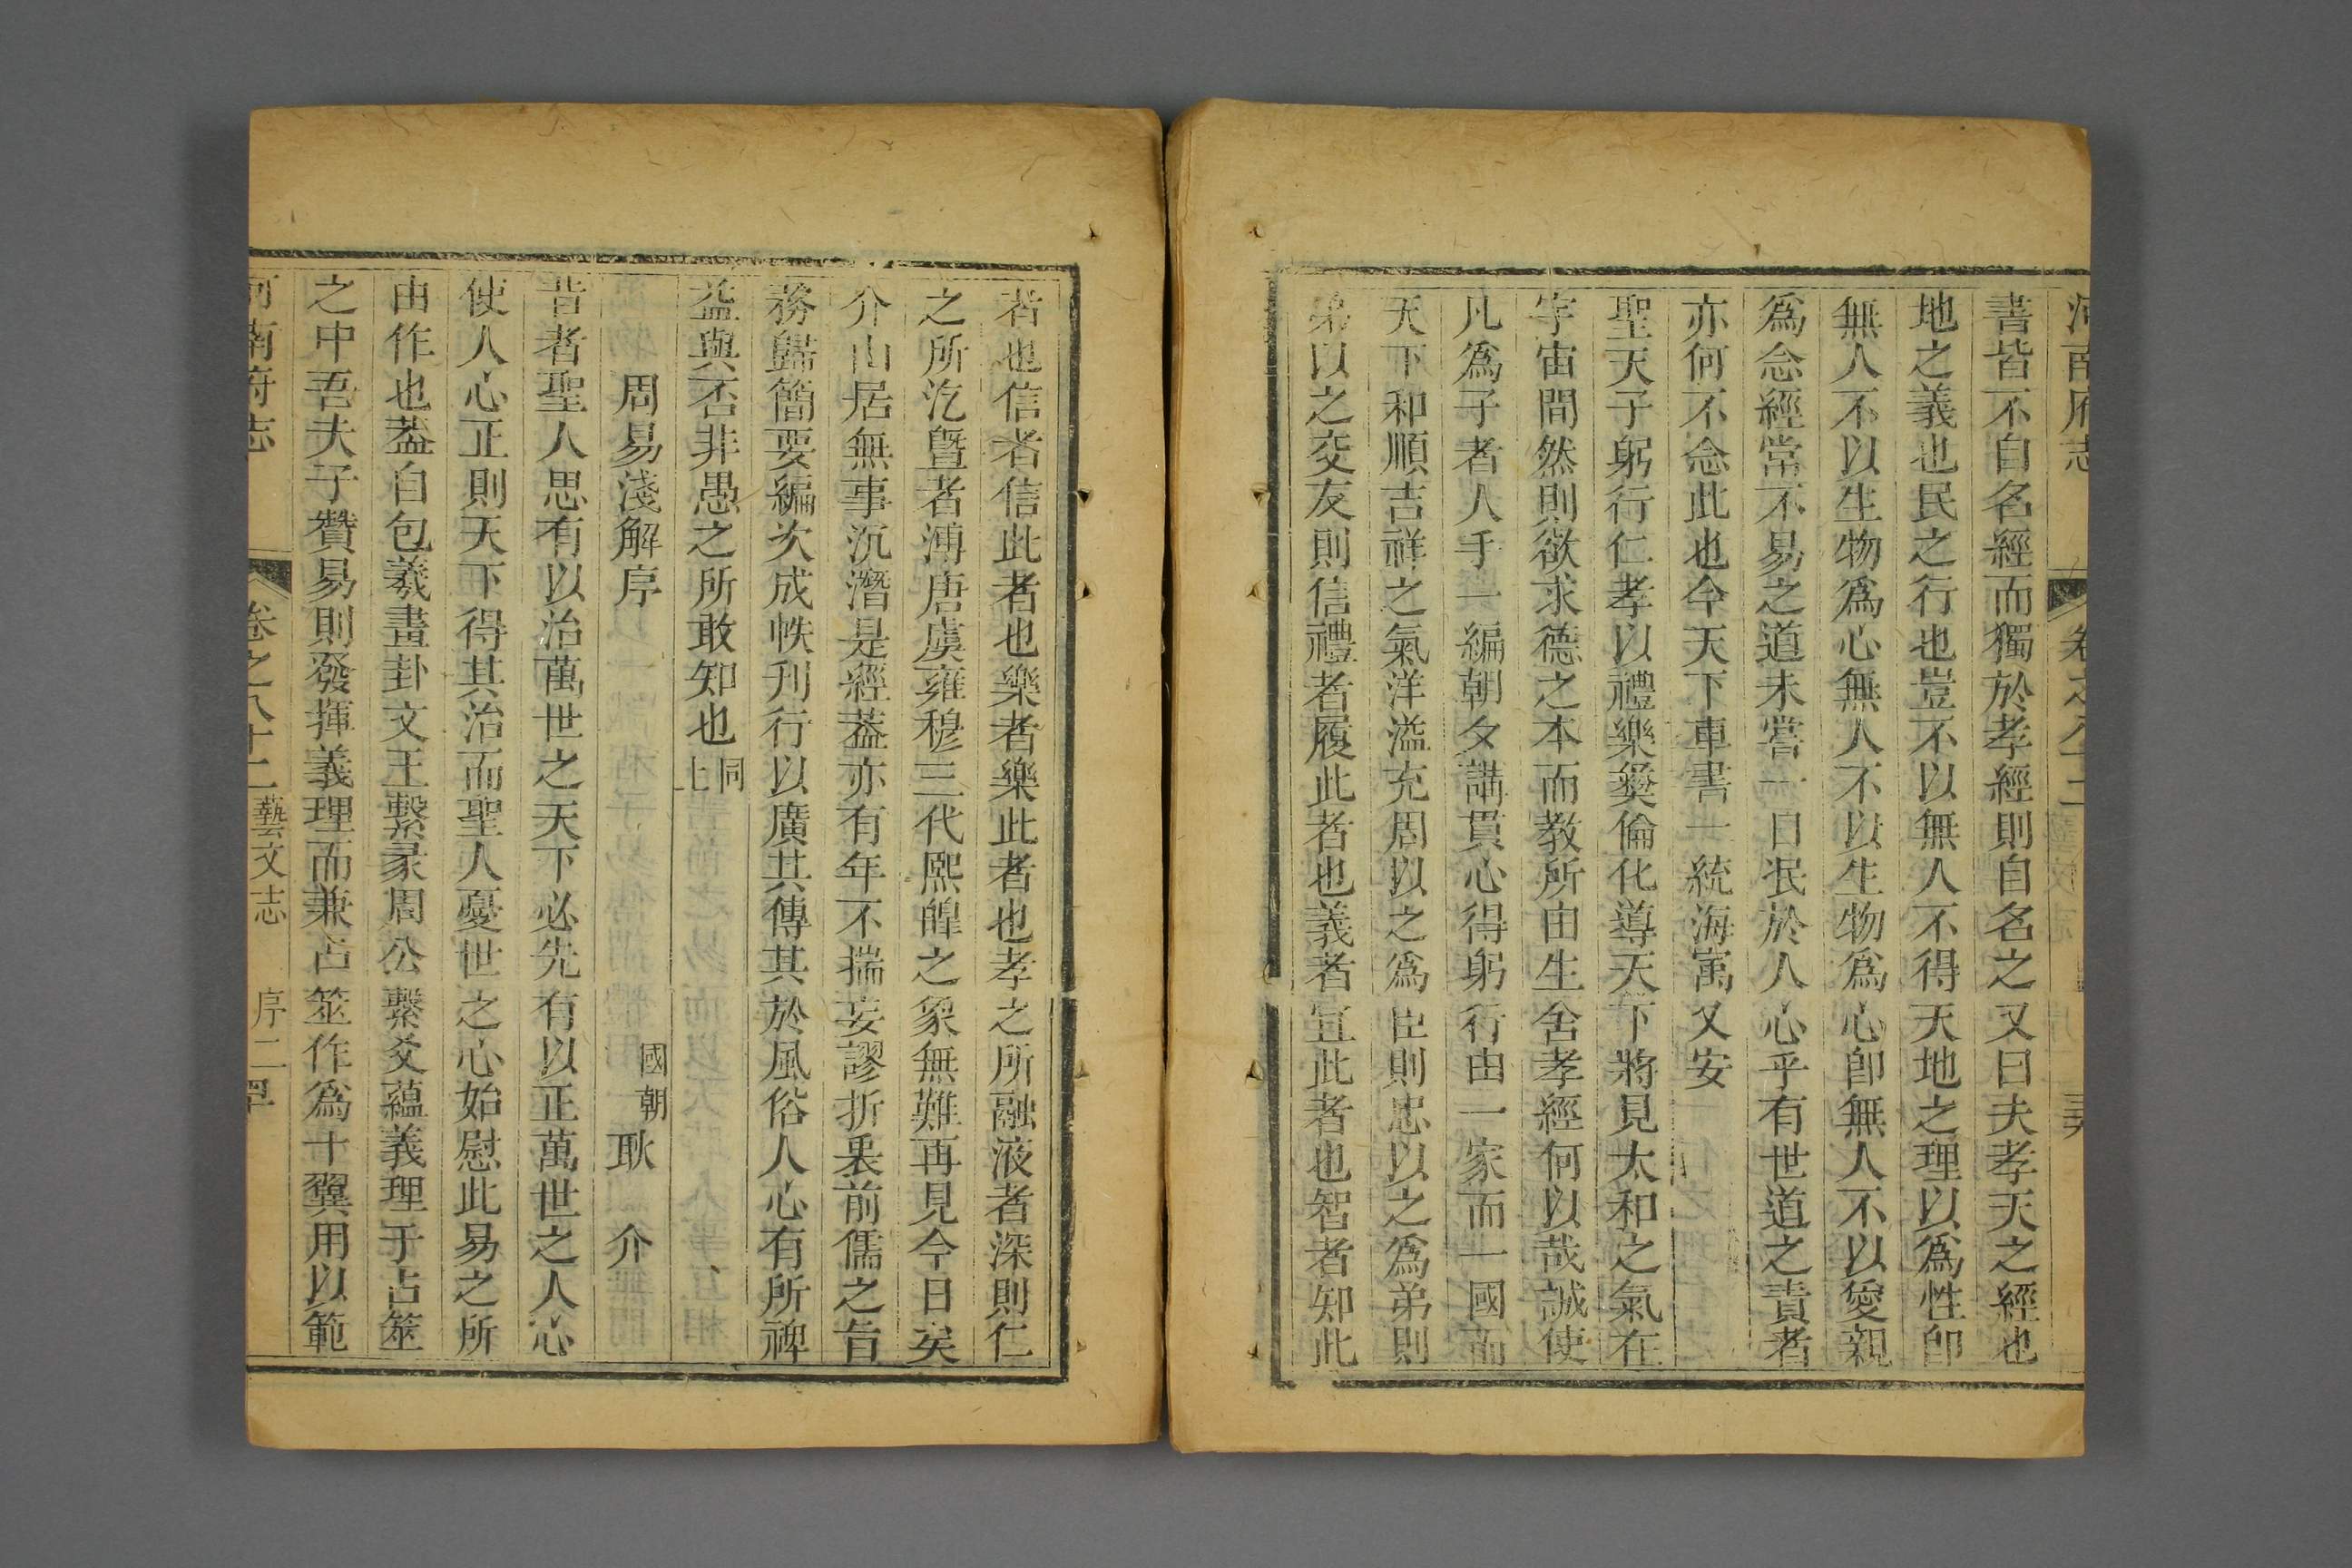 河南府志 卷之八十二
書皆不自名經而獨於孝經則自名之又曰夫孝天之經也
地之義也民之行也豈不以無人不得天地之理以爲性卽
無人不以生物爲心無人不以生物爲心卽無人不以愛親
爲念經常不易之道未嘗一日泯於人心乎有世道之責者
亦何不念此也今天下車書一統海寓乂安
聖天子躬行仁孝以禮樂彝倫化導天下將見太和之氣在
宇宙間然則欲求德之本而教所由生舍孝經何以哉誠使
凡爲子者人手一編朝夕講貫心得躬行由一家而一國而
天下和順吉祥之氣洋溢充周以之爲臣則忠以之爲弟則
弟以之交友則信禮者履此者也義者宜此者也智者知此
者也信者信此者也樂者樂此者也孝之所融液者深則仁
之所汔曁者溥唐虞雍穆三代熙皥之象無難再見今日矣
介山居無事沉潛是經葢亦有年不揣妄謬折衷前儒之旨
務歸簡要編次成帙刋行以廣其傳其於風俗人心有所禆
益與否非愚之所敢知也同上
周易淺解序 國朝耿介
昔者聖人思有以治萬世之天下必先有以正萬世之人心
使人心正則天下得其治而聖人憂世之心始慰此易之所
由作也葢自包羲畫卦文王繫彖周公繫爻蘊義理于占筮
之中吾夫子贊易則發揮義理而兼占筮作爲十翼用以範
河南府志 卷之八十二 藝文志 序二